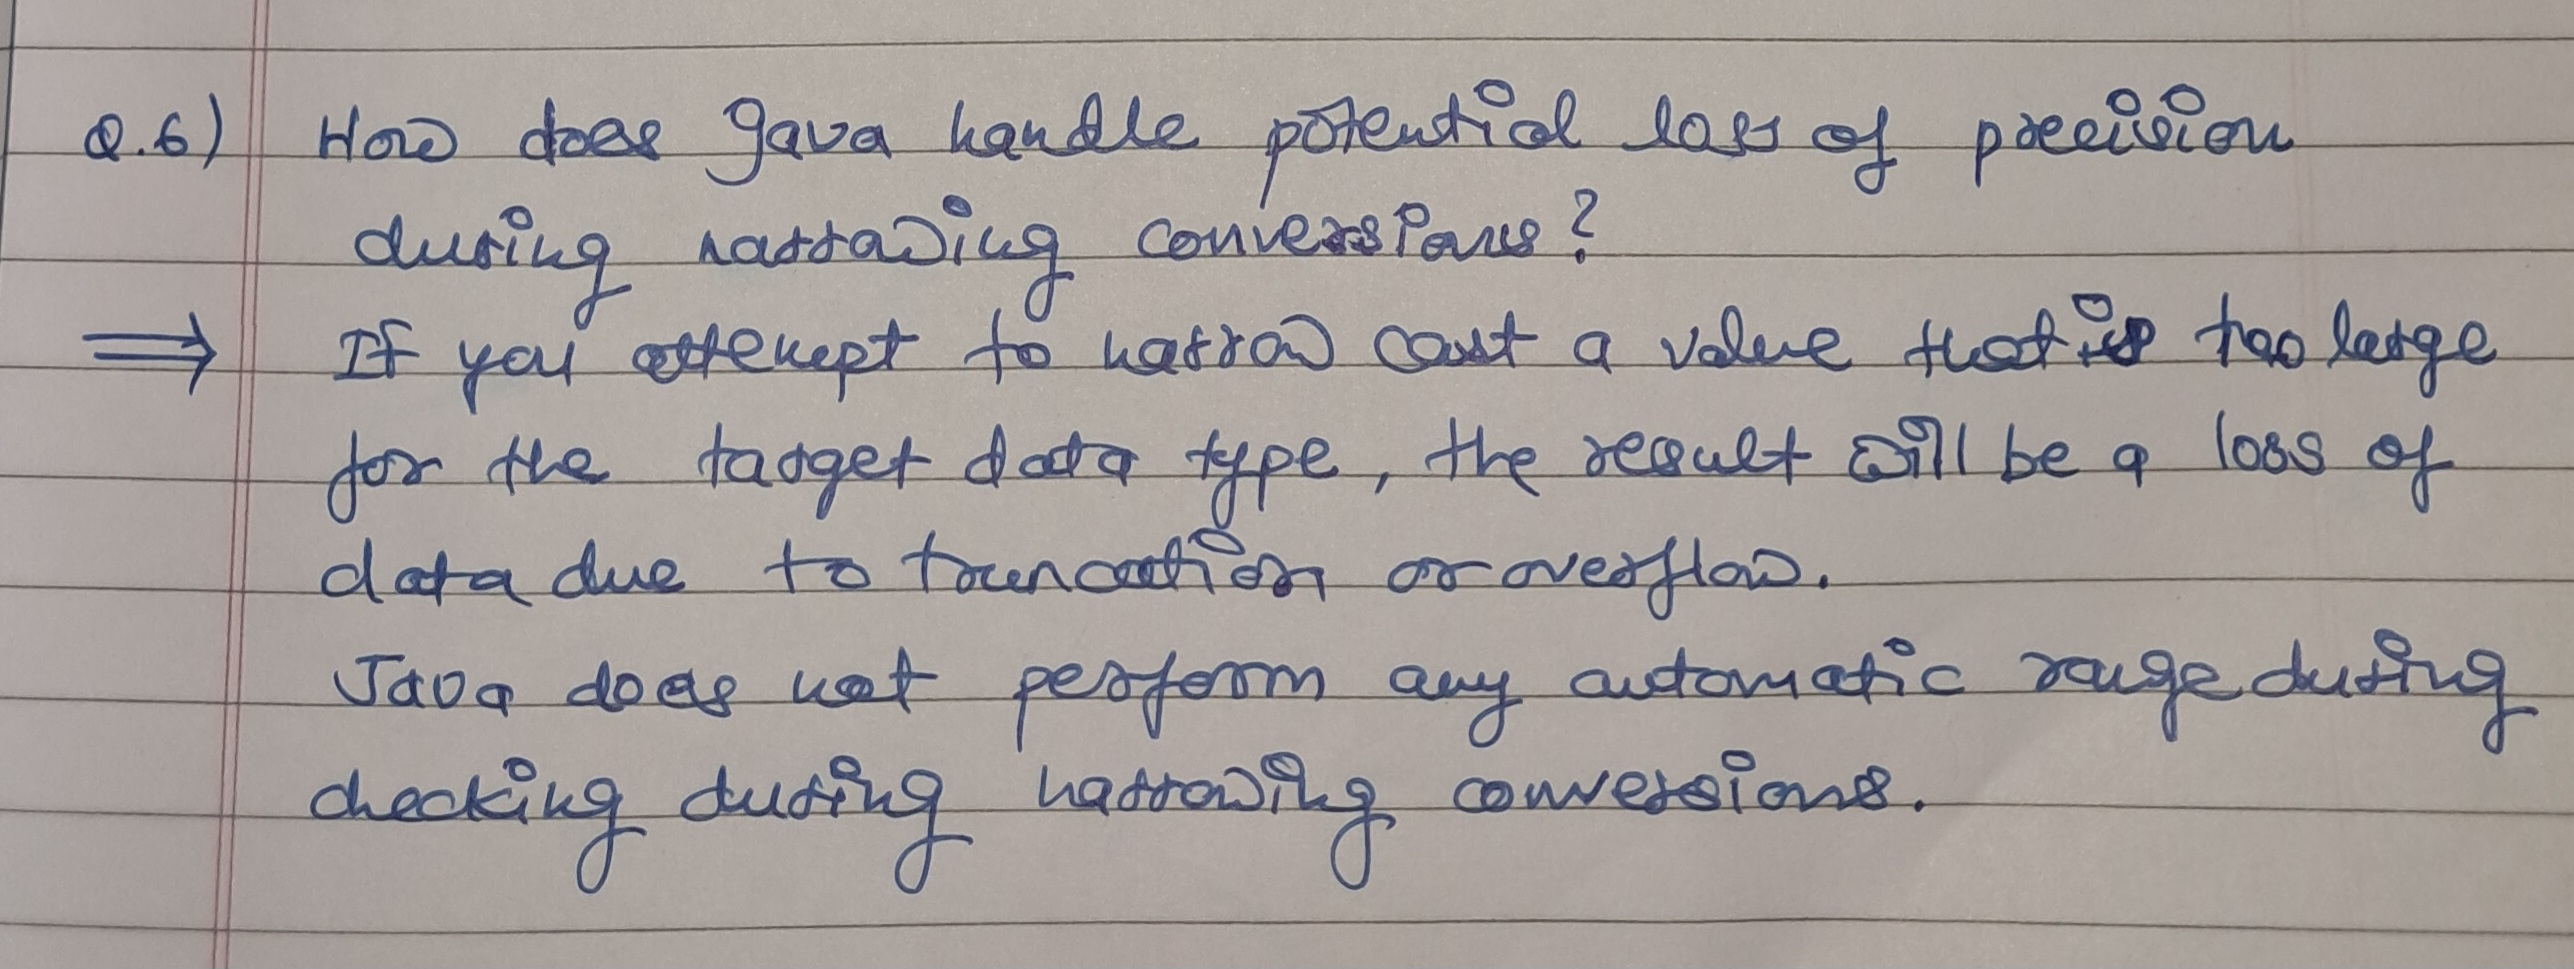 Q.6) How does Java handle potential loss of precision
during narrowing conversions?
⇒ If you attempt to narrow cast a value that is too large
for the target data type, the result will be a loss of
data due to truncation or overflow.
Java does not perform any automatic range during
checking during narrowing conversions.